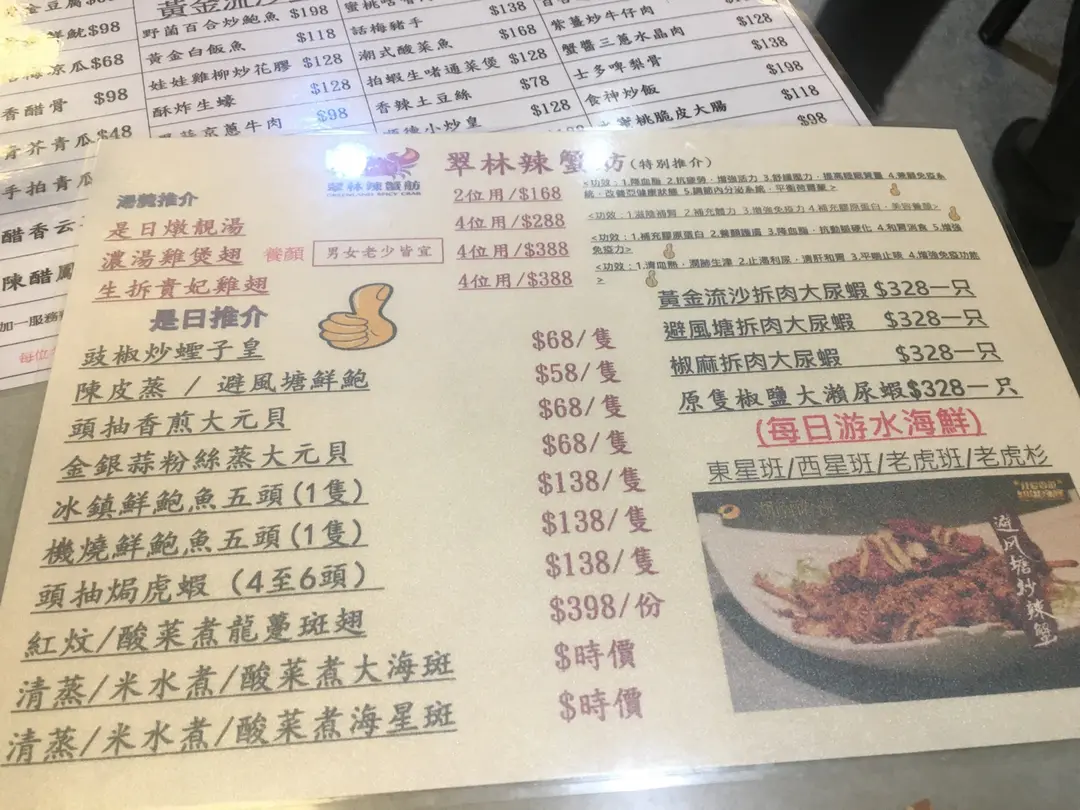 金豆腐
黃金流沙
$98
野菌百合炒鮑魚 $198
黃金白飯魚 $118
娃娃雞柳炒花膠 $128
酥炸生蠔 $128
京蔥牛肉 $98
涼瓜 $68
香醋骨 $98
青芥青瓜 $48
手拍青瓜
醋香云
陳醋鳳
加一服務
每位
話梅豬手 $138
潮式酸菜魚 $168
拍蝦生啫通菜煲 $128
香辣土豆絲 $78
順德小炒皇 $128
紫薑炒牛仔肉 $128
蟹醬三蔥水晶肉 $138
士多啤梨骨 $198
食神炒飯 $118
桃脆皮大腸 $98
翠林辣蟹舫
GREENLAND SPICY CRAB
翠林辣蟹舫(特別推介)
湯羹推介
是日燉靚湯 2位用/$168
4位用/$288
濃湯雞煲翅 養顏 男女老少皆宜 4位用/$388
生拆貴妃雞翅 4位用/$388
<功效:1.降血脂 2.抗疲勞,增強活力 3.舒緩壓力,提高睡眠質量 4.兼顧免疫系
統,改善亞健康狀態 5.調節內分泌系統,平衡荷爾蒙>
<功效:1.滋陰補腎 2.補充體力 3.增強免疫力 4.補充膠原蛋白,美容養顏>
<功效:1.補充膠原蛋白 2.養顏護膚 3.降血脂,抗動脈硬化 4.和胃消食 5.增強
免疫力>
<功效:1.清血熱,潤肺生津 2.止渴利尿,清肝和胃 3.平喘止咳 4.增強免疫功能
>
是日推介
豉椒炒蟶子皇 $68/隻
陳皮蒸 / 避風塘鮮鮑 $58/隻
頭抽香煎大元貝 $68/隻
金銀蒜粉絲蒸大元貝 $68/隻
冰鎮鮮鮑魚五頭(1隻) $138/隻
機燒鮮鮑魚五頭(1隻) $138/隻
頭抽焗虎蝦 (4至6頭) $138/隻
紅炆/酸菜煮龍躉斑翅 $398/份
清蒸/米水煮/酸菜煮大海斑 $時價
清蒸/米水煮/酸菜煮海星斑 $時價
黃金流沙拆肉大尿蝦 $328一只
避風塘拆肉大尿蝦 $328一只
椒麻拆肉大尿蝦 $328一只
原隻椒鹽大瀨尿蝦$328一只
(每日游水海鮮)
東星班/西星班/老虎班/老虎杉
避风塘炒辣蟹